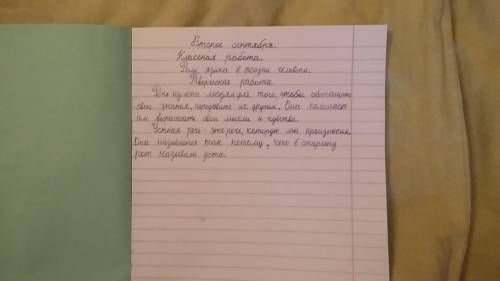 Второе сентября.
Классная работа.
Роль языка в жизни человека.
Творческая работа.
Речь нужна людям для того, чтобы обогащать
свои знания, передавать их другим. Она помогает
им выражать свои мысли и чувства.
Устная речь - это речь, которую мы произносим.
Она называется так потому, что в старину
рот называли уста.